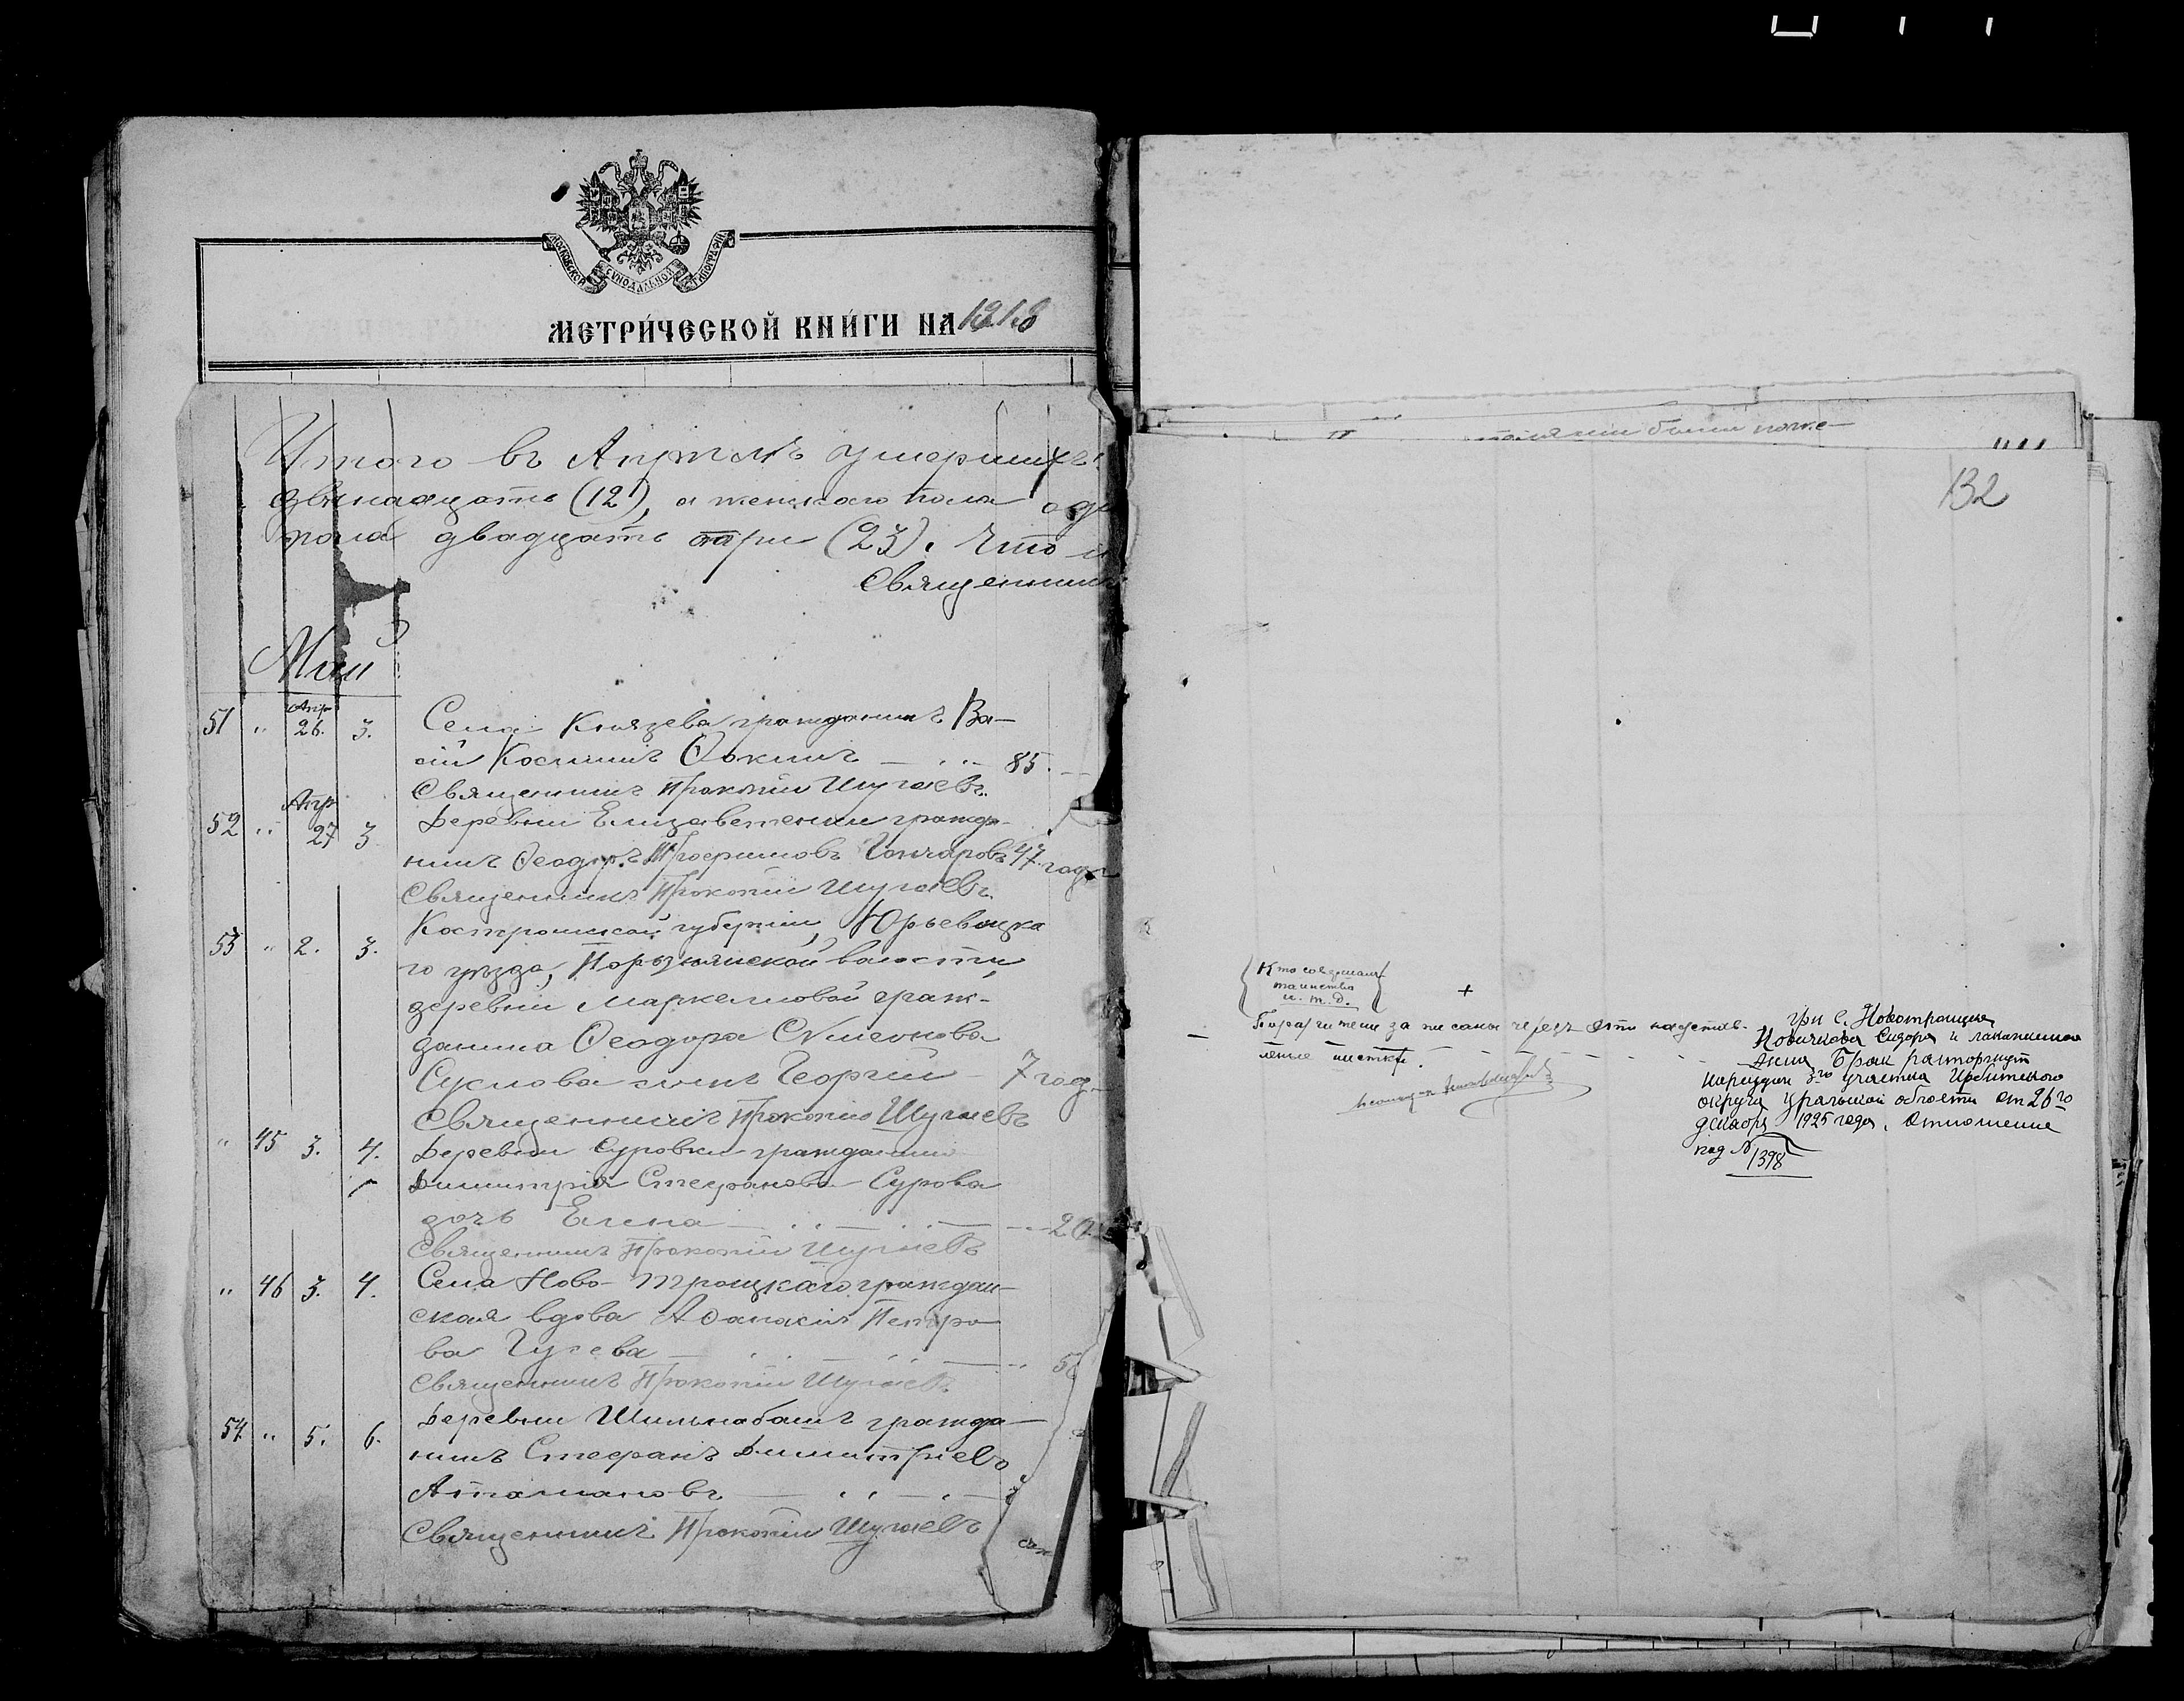 МОСКОВСКОЙ СѴНОДАЛЬНОЙ ТИПОГРАФІИ
МЕТРИ́ЧЕСКОЙ КНИ́ГИ НА 1918
Итого въ Апрѣлѣ умершихъ
двѣнадцать (12), а женскаго пола оди
пола двадцать три (23). Что и
Священник
Май
51 " Апр 26. 3. Села Князева гражданинъ Ва-
сій Косминъ Ѳокинъ — 85.
Священникъ Прокопій Шугаевъ.
52 " Апр 27 3 Деревни Елизаветенки гражда-
нинъ Ѳеодоръ Гончаровъ 47 года
Священникъ Прокопій Шугаевъ.
53 " 2. 3. Костромской губерніи, Юрьевецка
го уѣзда, волости,
деревни Маркеловой граж-
данина Ѳеодора Сѵмеонова
сынъ Георгій — 7 год.
Священникъ Прокопій Шугаевъ
" 45 3. 4. Деревни Суровки гражданина
Димитрія Стефанова Сурова
дочь Елена — 2
Священникъ Прокопій Шугаевъ
" 46 3. 4. Села Ново-Троицкаго граждан-
ская вдова Аѳанасія Петро
ва Гусева — 5
Священникъ Прокопій Шугаевъ.
54. " 5. 6. Деревни гражда-
нинъ Стефанъ Димитріевъ
Атамановъ —
Священникъ Прокопій Шугаевъ
были
132
Кто совершалъ
таинство
и. т. д.
+
записаны черезъ
листки.
гр-н С. Новотроицка
Новичкова Сидора и
Анны Брак расторгнут
Нарсудом 3го участка Ирбитского
округа уральской области от 26го
декабря 1925 года. Отношение
под №
1398